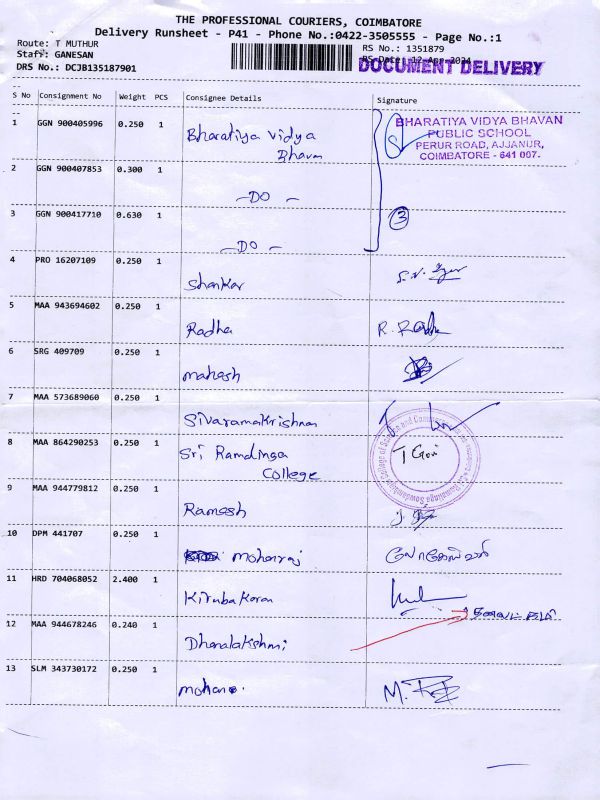 THE PROFESSIONAL COURIERS, COIMBATORE
Delivery Runsheet - P41 - Phone No.:0422-3505555 - Page No.:1
Route: T MUTHUR
RS No.: 1351879
Staff: GANESAN
RS Date: 12-Apr-2024
DOCUMENT DELIVERY
DRS No.: DCJB135187901
S No Consignment No Weight PCS Consignee Details Signature
1 GGN 900405996 0.250 1 Bharatiya Vidya
Bhavan
BHARATIYA VIDYA BHAVAN
PUBLIC SCHOOL
PERUR ROAD, AJJANUR,
COIMBATORE - 641 007.
2 GGN 900407853 0.300 1 -DO-
3 GGN 900417710 0.630 1 -DO- 3
4 PRO 16207109 0.250 1 Shankar
5 MAA 943694602 0.250 1 Radha R. Radha
6 SRG 409709 0.250 1 mahesh
7 MAA 573689060 0.250 1 Sivaramakrishnan
8 MAA 864290253 0.250 1 Sri Ramalinga
College
9 MAA 944779812 0.250 1 Ramesh
10 DPM 441707 0.250 1 mohanraj
11 HRD 704068052 2.400 1 Kirubakaran
12 MAA 944678246 0.240 1 Dhanalakshmi
13 SLM 343730172 0.250 1 mohan